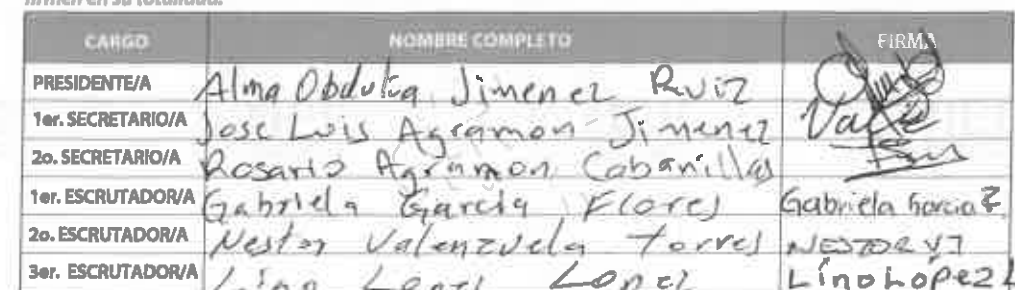 firmen en su totalidad.
CARGO NOMBRE COMPLETO FIRMA
PRESIDENTE/A Alma Obdulia Jimenez Ruiz
1er. SECRETARIO/A Jose Luis Agramon Jimenez
2o. SECRETARIO/A Rosario Agramon Cabanillas
1er. ESCRUTADOR/A Gabriela Garcia Flores Gabriela Garcia F
2o. ESCRUTADOR/A Nestor Valenzuela Torres NESTOR VT
3er. ESCRUTADOR/A Lino Lopez Lopez Líno López L